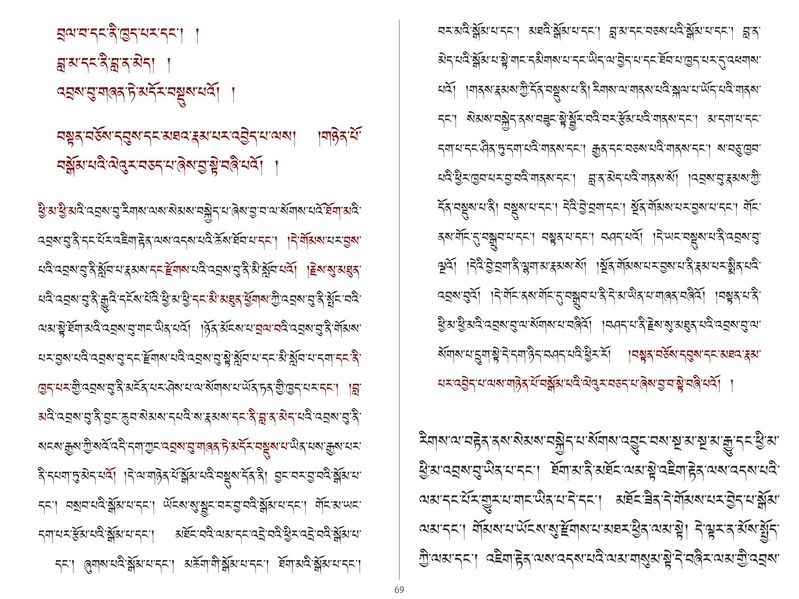 བྲལ་བ་དང་ནི་ཁྱད་པར་དང་། །
བླ་མ་དང་ནི་བླ་ན་མེད། །
འབྲས་བུ་གཞན་ཏེ་མདོར་བསྡུས་པའོ། །
བསྟན་བཅོས་དབུས་དང་མཐའ་རྣམ་པར་འབྱེད་པ་ལས། །གཉེན་པོ་
བསྒོམ་པའི་ལེའུར་བཅད་པ་ཞེས་བྱ་སྟེ་བཞི་པའོ། །
ཕྱི་མ་ཕྱི་མའི་འབྲས་བུ་རིགས་ལས་སེམས་བསྐྱེད་པ་ཞེས་བྱ་བ་ལ་སོགས་པའོ་ཐོག་མའི་
འབྲས་བུ་ནི་དང་པོར་འཇིག་རྟེན་ལས་འདས་པའི་ཆོས་ཐོབ་པ་དང་། །དེ་གོམས་པར་བྱས་
པའི་འབྲས་བུ་ནི་སློབ་པ་རྣམས་དང་རྫོགས་པའི་འབྲས་བུ་ནི་མི་སློབ་པའོ། །རྗེས་སུ་མཐུན་
པའི་འབྲས་བུ་ནི་རྒྱུའི་དངོས་པོའི་ཕྱི་མ་ཕྱི་དང་མི་མཐུན་ཕྱོགས་ཀྱི་འབྲས་བུ་ནི་སྤོང་བའི་
ལམ་སྟེ་ཐོག་མའི་འབྲས་བུ་གང་ཡིན་པའོ། །ཉོན་མོངས་པ་བྲལ་བའི་འབྲས་བུ་ནི་གོམས་
པར་བྱས་པའི་འབྲས་བུ་དང་རྫོགས་པའི་འབྲས་བུ་སྟེ་སློབ་པ་དང་མི་སློབ་པ་དག་དང་ནི་
ཁྱད་པར་གྱི་འབྲས་བུ་ནི་མངོན་པར་ཤེས་པ་ལ་སོགས་པ་ཡོན་ཏན་གྱི་ཁྱད་པར་དང་། །བླ་
མའི་འབྲས་བུ་ནི་བྱང་ཆུབ་སེམས་དཔའི་ས་རྣམས་དང་ནི་བླ་ན་མེད་པའི་འབྲས་བུ་ནི་
སངས་རྒྱས་ཀྱི་སའོ་འདི་དག་ཀྱང་འབྲས་བུ་གཞན་ཏེ་མདོར་བསྡུས་པ་ཡིན་པས་རྒྱས་པར་
ནི་དཔག་ཏུ་མེད་པའོ། །དེ་ལ་གཉེན་པོ་སྒོམ་པའི་བསྡུས་དོན་ནི། བྱང་བར་བྱ་བའི་སྒོམ་པ་
དང་། བསྲབ་པའི་སྒོམ་པ་དང་། ཡོངས་སུ་སྦྱང་བར་བྱ་བའི་སྒོམ་པ་དང་། གོང་མ་ཡང་
དག་པར་རྩོམ་པའི་སྒོམ་པ་དང་། མཐོང་བའི་ལམ་དང་འདྲེ་བའི་ཕྱིར་འདྲེ་བའི་སྒོམ་པ་
དང་། ཞུགས་པའི་སྒོམ་པ་དང་། མཆོག་གི་སྒོམ་པ་དང་། ཐོག་མའི་སྒོམ་པ་དང་།
བར་མའི་སྒོམ་པ་དང་། མཐའི་སྒོམ་པ་དང་། བླ་མ་དང་བཅས་པའི་སྒོམ་པ་དང་། བླ་ན་
མེད་པའི་སྒོམ་པ་སྟེ་གང་དམིགས་པ་དང་ཡིད་ལ་བྱེད་པ་དང་ཐོབ་པ་ཁྱད་པར་དུ་འཕགས་
པའོ། །གནས་རྣམས་ཀྱི་དོན་བསྡུས་པ་ནི། རིགས་ལ་གནས་པའི་སྐལ་པ་ཡོད་པའི་གནས་
དང་། སེམས་བསྐྱེད་ནས་བཟུང་སྟེ་སྦྱོར་བའི་བར་རྩོམ་པའི་གནས་དང་། མ་དག་པ་དང་
དག་པ་དང་ཤིན་ཏུ་དག་པའི་གནས་དང་། རྒྱན་དང་བཅས་པའི་གནས་དང་། ས་བཅུ་ཁྱབ་
པའི་ཕྱིར་ཁྱབ་པར་བྱ་བའི་གནས་དང་། བླ་ན་མེད་པའི་གནས་སོ། །འབྲས་བུ་རྣམས་ཀྱི་
དོན་བསྡུས་པ་ནི། བསྡུས་པ་དང་། དེའི་བྱེ་བྲག་དང་། སྔོན་གོམས་པར་བྱས་པ་དང་། གོང་
ནས་གོང་དུ་བསྒྲུབ་པ་དང་། བསྟན་པ་དང་། བཤད་པའོ། །དེ་ཡང་བསྡུས་པ་ནི་འབྲས་བུ་
ལྔའོ། །དེའི་བྱེ་བྲག་ནི་ལྷག་མ་རྣམས་སོ། །སྔོན་གོམས་པར་བྱས་པ་ནི་རྣམ་པར་སྨིན་པའི་
འབྲས་བུའོ། །དེ་གོང་ནས་གོང་དུ་བསྒྲུབ་པ་ནི་དེ་མ་ཡིན་པ་གཞན་བཞིའོ། །བསྟན་པ་ནི་
ཕྱི་མ་ཕྱི་མའི་འབྲས་བུ་ལ་སོགས་པ་བཞིའོ། །བཤད་པ་ནི་རྗེས་སུ་མཐུན་པའི་འབྲས་བུ་ལ་
སོགས་པ་དྲུག་སྟེ་དེ་དག་ཉིད་བཤད་པའི་ཕྱིར་རོ། །བསྟན་བཅོས་དབུས་དང་མཐའ་རྣམ་
པར་འབྱེད་པ་ལས་གཉེན་པོ་བསྒོམ་པའི་ལེའུར་བཅད་པ་ཞེས་བྱ་བ་སྟེ་བཞི་པའོ། །
རིགས་ལ་བརྟེན་ནས་སེམས་བསྐྱེད་པ་སོགས་འབྱུང་བས་སྔ་མ་སྔ་མ་རྒྱུ་དང་ཕྱི་མ་
ཕྱི་མ་འབྲས་བུ་ཡིན་པ་དང་། ཐོག་མ་ནི་མཐོང་ལམ་སྟེ་འཇིག་རྟེན་ལས་འདས་པའི་
ལམ་དང་པོར་གྱུར་པ་གང་ཡིན་པ་དེ་དང་། མཐོང་ཟིན་དེ་གོམས་པར་བྱེད་པ་སྒོམ་
ལམ་དང་། གོམས་པ་ཡོངས་སུ་རྫོགས་པ་མཐར་ཕྱིན་ལམ་སྟེ། དེ་ལྟར་ན་མོས་སྤྱོད་
ཀྱི་ལམ་དང་། འཇིག་རྟེན་ལས་འདས་པའི་ལམ་གསུམ་སྟེ་དེ་བཞིར་ལམ་གྱི་འབྲས་
69